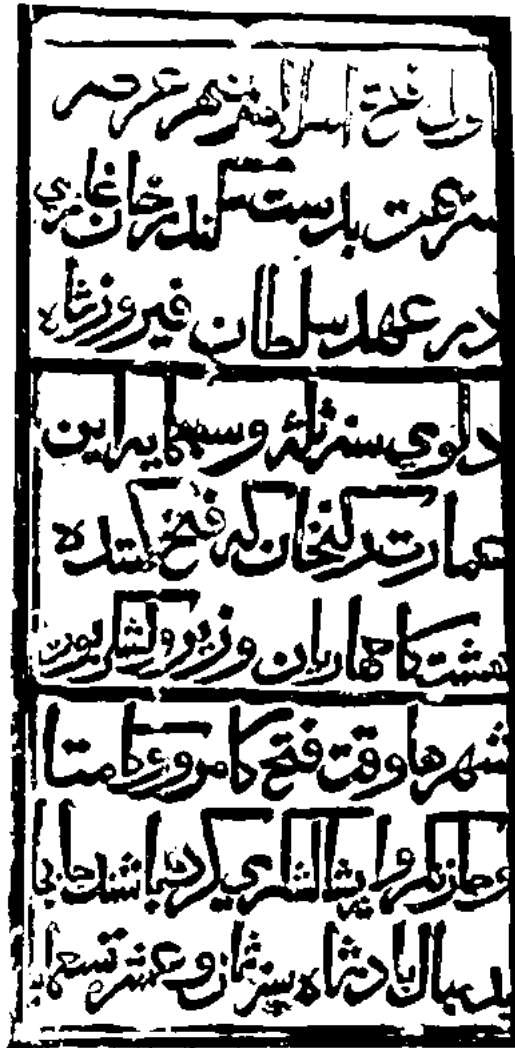 اول فتح اسلام شهر عرصه
سریهت بدست سکندر خان غازی
در عهد سلطان فیروز شاه
دلوی سنه ثلثة و سبعمایه این
عمارت رکنخان که فتح کننده
هشت کامهاریان وزیر و لشکر بوده
شهرها وقت فتح کامرو و کامتا
و جازنگر و اریشا لشکری کرده باشند جابجا
بدنبال پادشاه سنه ثمان و عشر تسعمایه